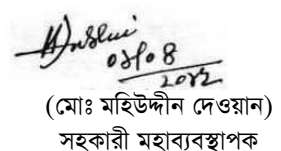 ০৯/০৪
২০১২
(মোঃ মহিউদ্দীন দেওয়ান)
সহকারী মহাব্যবস্থাপক